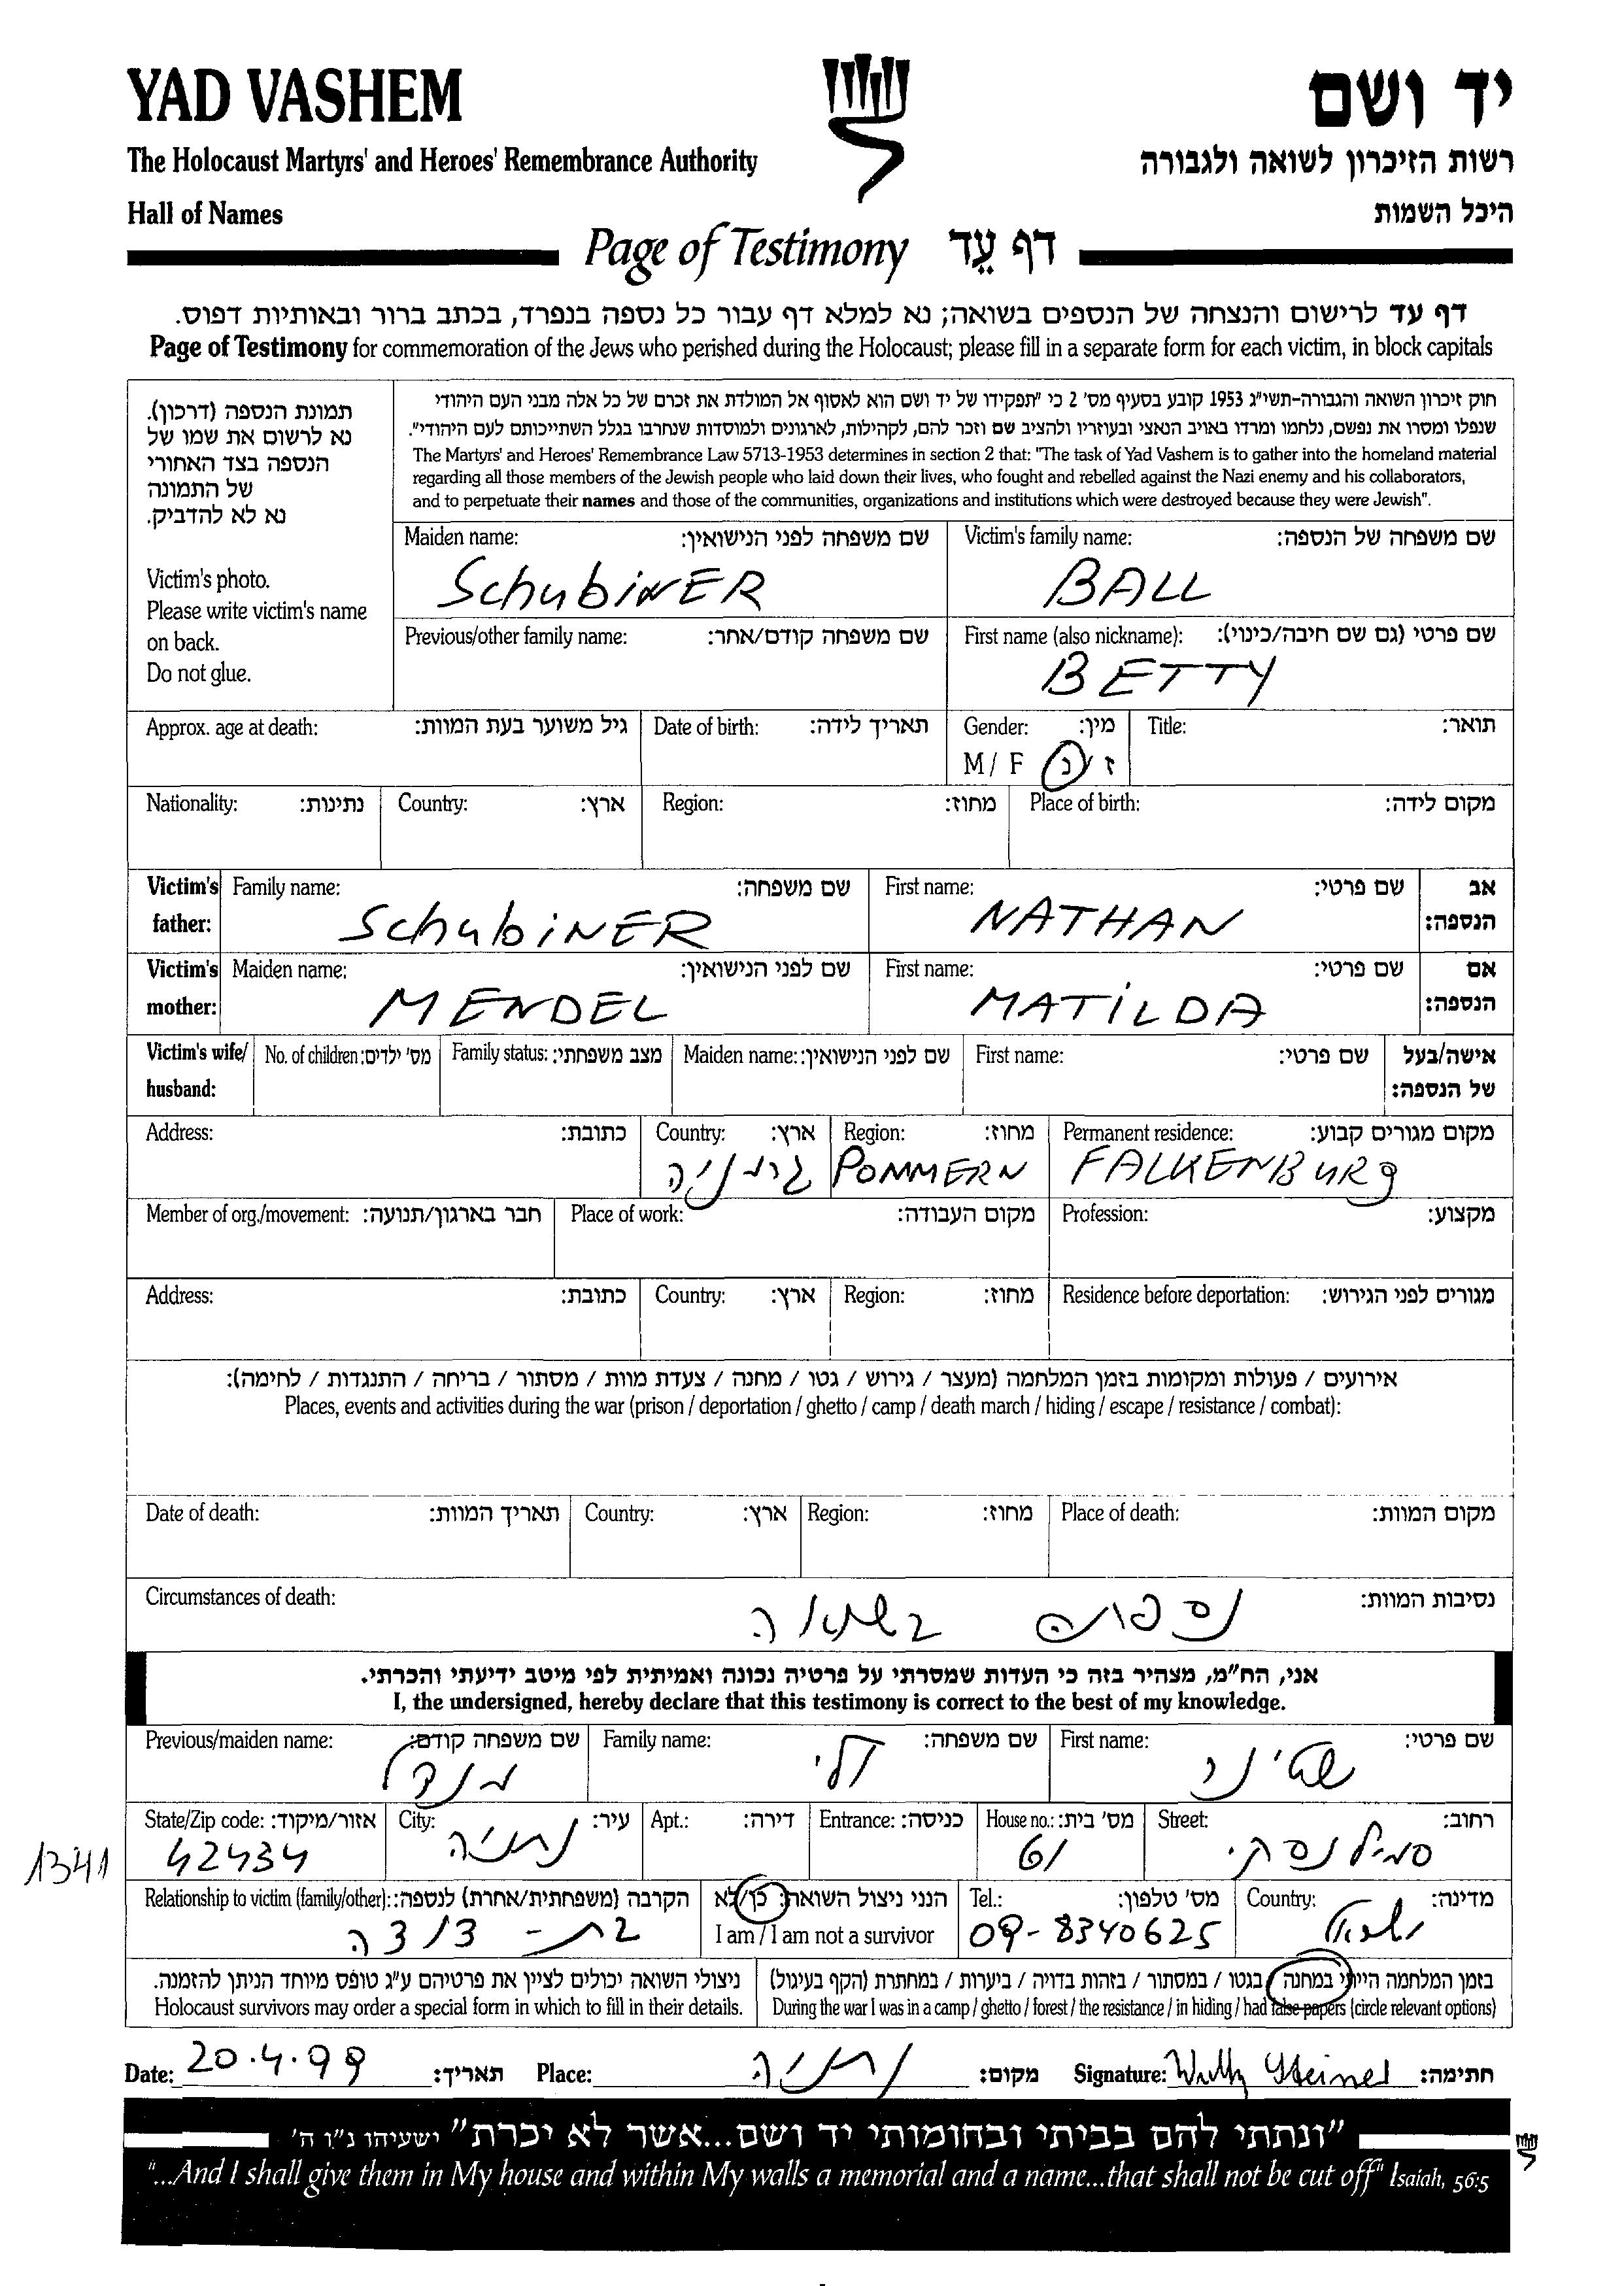 YAD VASHEM
יד ושם
The Holocaust Martyrs' and Heroes' Remembrance Authority
רשות הזיכרון לשואה ולגבורה
Hall of Names
היכל השמות
Page of Testimony דף עֵד
דף עד לרישום והנצחה של הנספים בשואה; נא למלא דף עבור כל נספה בנפרד, בכתב ברור ובאותיות דפוס.
Page of Testimony for commemoration of the Jews who perished during the Holocaust; please fill in a separate form for each victim, in block capitals
תמונת הנספה (דרכון).
נא לרשום את שמו של
הנספה בצד האחורי
של התמונה
נא לא להדביק.
Victim's photo.
Please write victim's name
on back.
Do not glue.
חוק זיכרון השואה והגבורה-תשי"ג 1953 קובע בסעיף מס' 2 כי "תפקידו של יד ושם הוא לאסוף אל המולדת את זכרם של כל אלה מבני העם היהודי
שנפלו ומסרו את נפשם, נלחמו ומרדו באויב הנאצי ובעוזריו ולהציב שם וזכר להם, לקהילות, לארגונים ולמוסדות שנחרבו בגלל השתייכותם לעם היהודי".
The Martyrs' and Heroes' Remembrance Law 5713-1953 determines in section 2 that: "The task of Yad Vashem is to gather into the homeland material
regarding all those members of the Jewish people who laid down their lives, who fought and rebelled against the Nazi enemy and his collaborators,
and to perpetuate their names and those of the communities, organizations and institutions which were destroyed because they were Jewish".
Maiden name: שם משפחה לפני הנישואין: Victim's family name: שם משפחה של הנספה:
SchubiNER BALL
Previous/other family name: שם משפחה קודם/אחר: First name (also nickname): שם פרטי (גם שם חיבה/כינוי):
BETTY
Approx. age at death: גיל משוער בעת המוות: Date of birth: תאריך לידה: Gender: מין: Title: תואר:
M / F ז / נ
Nationality: נתינות: Country: ארץ: Region: מחוז: Place of birth: מקום לידה:
Victim's father: Family name: שם משפחה: First name: שם פרטי: אב הנספה:
SchubiNER NATHAN
Victim's mother: Maiden name: שם לפני הנישואין: First name: שם פרטי: אם הנספה:
MENDEL MATiLDA
Victim's wife/ husband: No. of children: מס' ילדים: Family status: מצב משפחתי: Maiden name: שם לפני הנישואין: First name: שם פרטי: אישה/בעל של הנספה:
Address: כתובת: Country: ארץ: Region: מחוז: Permanent residence: מקום מגורים קבוע:
גרמניה POMMERN FALKENBURg
Member of org./movement: חבר בארגון/תנועה: Place of work: מקום העבודה: Profession: מקצוע:
Address: כתובת: Country: ארץ: Region: מחוז: Residence before deportation: מגורים לפני הגירוש:
אירועים / פעולות ומקומות בזמן המלחמה (מעצר / גירוש / גטו / מחנה / צעדת מוות / מסתור / בריחה / התנגדות / לחימה):
Places, events and activities during the war (prison / deportation / ghetto / camp / death march / hiding / escape / resistance / combat):
Date of death: תאריך המוות: Country: ארץ: Region: מחוז: Place of death: מקום המוות:
Circumstances of death: נסיבות המוות:
בשואה
אני, הח"מ, מצהיר בזה כי העדות שמסרתי על פרטיה נכונה ואמיתית לפי מיטב ידיעתי והכרתי.
I, the undersigned, hereby declare that this testimony is correct to the best of my knowledge.
Previous/maiden name: שם משפחה קודם: Family name: שם משפחה: First name: שם פרטי:
מנדל
State/Zip code: אזור/מיקוד: City: עיר: Apt.: דירה: Entrance: כניסה: House no.: מס' בית: Street: רחוב:
42434 נתניה 61 סמילנסקי
1341
Relationship to victim (family/other): הקרבה (משפחתית/אחרת) לנספה: הנני ניצול השואה: כן/לא Tel.: מס' טלפון: Country: מדינה:
I am / I am not a survivor
בת-דודה 09-8340625 ישראל
ניצולי השואה יכולים לציין את פרטיהם ע"ג טופס מיוחד הניתן להזמנה. בזמן המלחמה הייתי במחנה / בגטו / במסתור / בזהות בדויה / ביערות / במחתרת (הקף בעיגול)
Holocaust survivors may order a special form in which to fill in their details. During the war I was in a camp / ghetto / forest / the resistance / in hiding / had false papers (circle relevant options)
Date: 20.4.99 תאריך: Place: נתניה מקום: Signature: חתימה:
"ונתתי להם בביתי ובחומותי יד ושם...אשר לא יכרת" ישעיהו נ"ו ה'
"...And I shall give them in My house and within My walls a memorial and a name...that shall not be cut off" Isaiah, 56:5